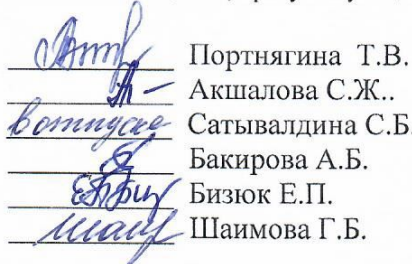 Портнягина Т.В.
Акшалова С.Ж..
в отпуске Сатывалдина С.Б.
Бакирова А.Б.
Бизюк Е.П.
Шаимова Г.Б.